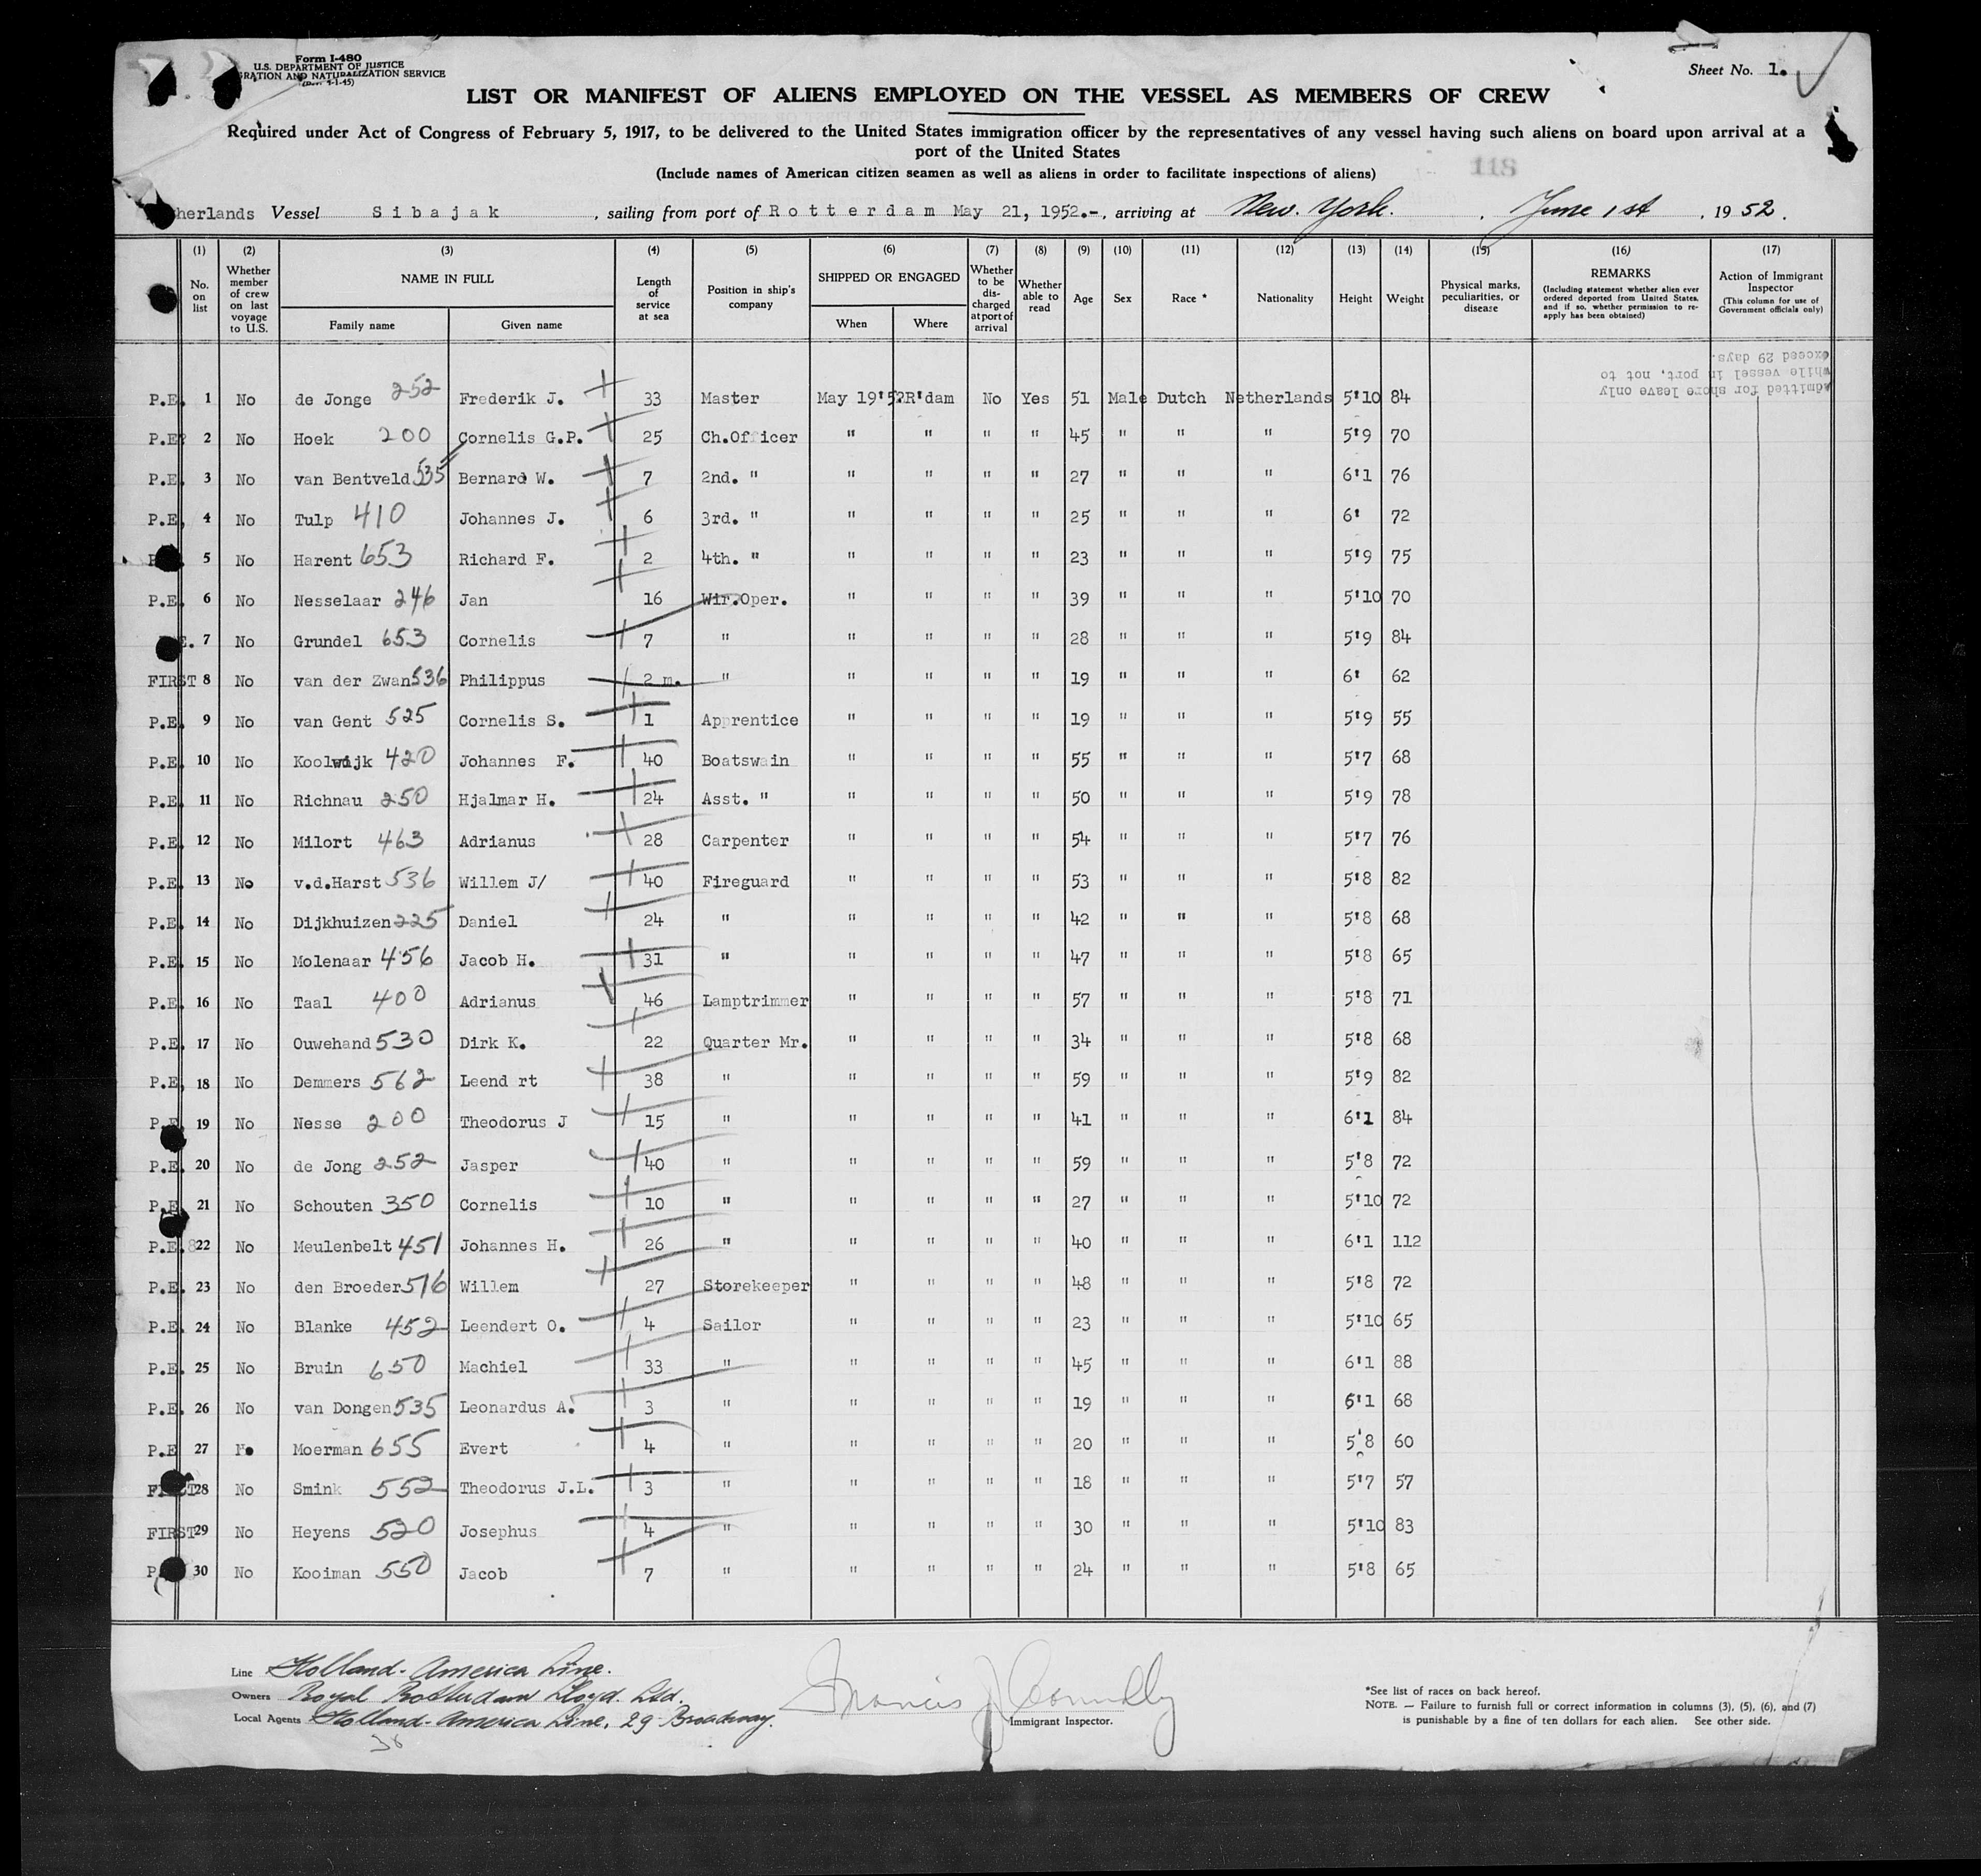 Form I-480
U.S. DEPARTMENT OF JUSTICE
GRATION AND NATURALIZATION SERVICE
(Rev. 4-1-45)
Sheet No. 1.
LIST OR MANIFEST OF ALIENS EMPLOYED ON THE VESSEL AS MEMBERS OF CREW
Required under Act of Congress of February 5, 1917, to be delivered to the United States immigration officer by the representatives of any vessel having such aliens on board upon arrival at a
port of the United States
(Include names of American citizen seamen as well as aliens in order to facilitate inspections of aliens)
118
herlands Vessel Sibajak, sailing from port of Rotterdam May 21, 1952.-, arriving at New. York. , June 1st , 1952.
(1) (2) (3) (4) (5) (6) (7) (8) (9) (10) (11) (12) (13) (14) (15) (16) (17)
No. on list
Whether member of crew on last voyage to U.S.
NAME IN FULL
Family name Given name
Length of service at sea
Position in ship's company
SHIPPED OR ENGAGED
When Where
Whether to be discharged at port of arrival
Whether able to read
Age
Sex
Race *
Nationality
Height
Weight
Physical marks, peculiarities, or disease
REMARKS
(Including statement whether alien ever ordered deported from United States, and if so, whether permission to re-apply has been obtained)
Action of Immigrant Inspector
(This column for use of Government officials only)
Admitted for shore leave only
while vessel in port, not to
exceed 29 days.
P.E. 1 No de Jonge 252 Frederik J. 33 Master May 19'52 R'dam No Yes 51 Male Dutch Netherlands 5'10 84
P.E. 2 No Hoek 200 Cornelis G.P. 25 Ch.Officer " " " " 45 " " " 5'9 70
P.E. 3 No van Bentveld 535 Bernard W. 7 2nd. " " " " " 27 " " " 6'1 76
P.E. 4 No Tulp 410 Johannes J. 6 3rd. " " " " " 25 " " " 6' 72
5 No Harent 653 Richard F. 2 4th. " " " " " 23 " " " 5'9 75
P.E. 6 No Nesselaar 246 Jan 16 Wir.Oper. " " " " 39 " " " 5'10 70
E. 7 No Grundel 653 Cornelis 7 " " " " " 28 " " " 5'9 84
FIRST 8 No van der Zwan 536 Philippus 2 m. " " " " " 19 " " " 6' 62
P.E. 9 No van Gent 525 Cornelis S. 1 Apprentice " " " " 19 " " " 5'9 55
P.E. 10 No Koolwijk 420 Johannes F. 40 Boatswain " " " " 55 " " " 5'7 68
P.E. 11 No Richnau 250 Hjalmar H. 24 Asst. " " " " " 50 " " " 5'9 78
P.E. 12 No Milort 463 Adrianus 28 Carpenter " " " " 54 " " " 5'7 76
P.E. 13 No v.d.Harst 536 Willem J/ 40 Fireguard " " " " 53 " " " 5'8 82
P.E. 14 No Dijkhuizen 225 Daniel 24 " " " " " 42 " " " 5'8 68
P.E. 15 No Molenaar 456 Jacob H. 31 " " " " " 47 " " " 5'8 65
P.E. 16 No Taal 400 Adrianus 46 Lamptrimmer " " " " 57 " " " 5'8 71
P.E. 17 No Ouwehand 530 Dirk K. 22 Quarter Mr. " " " " 34 " " " 5'8 68
P.E. 18 No Demmers 562 Leend rt 38 " " " " " 59 " " " 5'9 82
P.E. 19 No Nesse 200 Theodorus J 15 " " " " " 41 " " " 6'1 84
P.E. 20 No de Jong 252 Jasper 40 " " " " " 59 " " " 5'8 72
P.E. 21 No Schouten 350 Cornelis 10 " " " " " 27 " " " 5'10 72
P.E. 22 No Meulenbelt 451 Johannes H. 26 " " " " " 40 " " " 6'1 112
P.E. 23 No den Broeder 516 Willem 27 Storekeeper " " " " 48 " " " 5'8 72
P.E. 24 No Blanke 452 Leendert O. 4 Sailor " " " " 23 " " " 5'10 65
P.E. 25 No Bruin 650 Machiel 33 " " " " " 45 " " " 6'1 88
P.E. 26 No van Dongen 535 Leonardus A. 3 " " " " " 19 " " " 6'1 68
P.E 27 No Moerman 655 Evert 4 " " " " " 20 " " " 5'8 60
FIRST 28 No Smink 552 Theodorus J.L. 3 " " " " " 18 " " " 5'7 57
FIRST 29 No Heyens 520 Josephus 4 " " " " " 30 " " " 5'10 83
P. 30 No Kooiman 550 Jacob 7 " " " " " 24 " " " 5'8 65
Line Holland-America Line.
Owners Royal Rotterdam Lloyd. Ltd.
Local Agents Holland-America Line, 29-Broadway.
Francis J Connolly
Immigrant Inspector.
*See list of races on back hereof.
NOTE. — Failure to furnish full or correct information in columns (3), (5), (6), and (7)
is punishable by a fine of ten dollars for each alien. See other side.